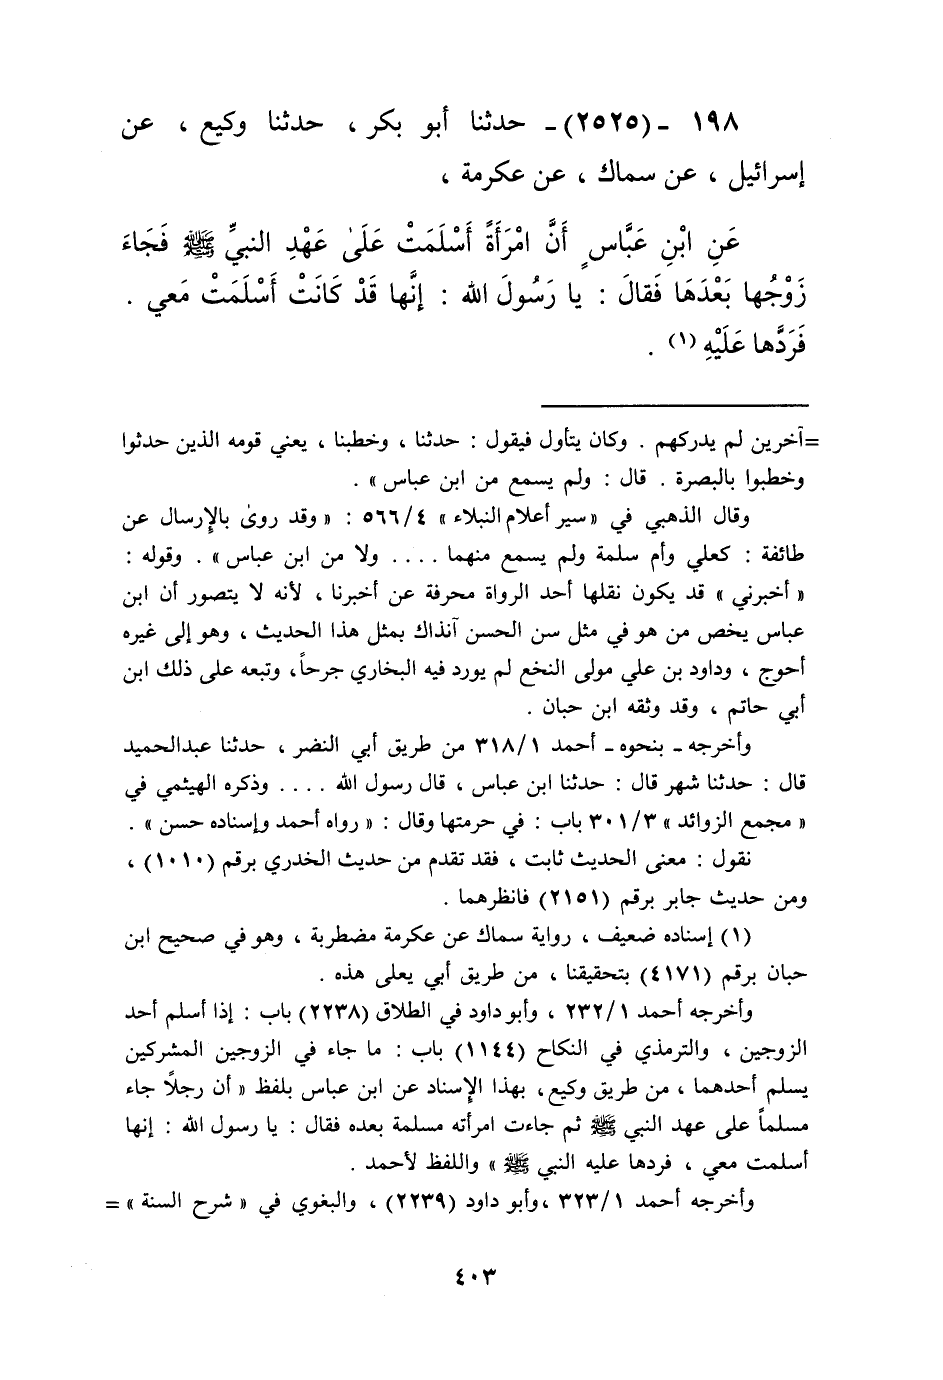 ١٩٨ ـ (٢٥٢٥)ـ حدثنا أبو بكر ، حدثنا وكيع ، عن
إسرائيل ، عن سماك ، عن عكرمة ،
عَنِ ابْنِ عَبَّاسٍ أَنَّ امْرَأَةً أَسْلَمَتْ عَلَىٰ عَهْدِ النبيِّ ﷺ فَجَاءَ
زَوْجُها بَعْدَهَا فَقالَ : يا رَسُولَ الله : إنَّها قَدْ كَانَتْ أَسْلَمَتْ مَعي .
فَرَدَّها عَلَيْهِ (١) .
=آخرين لم يدركهم . وكان يتأول فيقول : حدثنا ، وخطبنا ، يعني قومه الذين حدثوا
وخطبوا بالبصرة . قال : ولم يسمع من ابن عباس » .
وقال الذهبي في « سير أعلام النبلاء » ٥٦٦/٤ : « وقد روىٰ بالإرسال عن
طائفة : كعلي وأم سلمة ولم يسمع منهما . . . . ولا من ابن عباس » . وقوله :
« أخبرني » قد يكون نقلها أحد الرواة محرفة عن أخبرنا ، لأنه لا يتصور أن ابن
عباس يخص من هو في مثل سن الحسن آنذاك بمثل هذا الحديث ، وهو إلى غيره
أحوج ، وداود بن علي مولى النخع لم يورد فيه البخاري جرحاً، وتبعه على ذلك ابن
أبي حاتم ، وقد وثقه ابن حبان .
وأخرجه ـ بنحوه ـ أحمد ٣١٨/١ من طريق أبي النضر ، حدثنا عبدالحميد
قال : حدثنا شهر قال : حدثنا ابن عباس ، قال رسول الله . . . . وذكره الهيثمي في
« مجمع الزوائد » ٣٠١/٣ باب : في حرمتها وقال : « رواه أحمد وإسناده حسن » .
نقول : معنى الحديث ثابت ، فقد تقدم من حديث الخدري برقم (١٠١٠) ،
ومن حديث جابر برقم (٢١٥١) فانظرهما .
(١) إسناده ضعيف ، رواية سماك عن عكرمة مضطربة ، وهو في صحيح ابن
حبان برقم (٤١٧١) بتحقيقنا ، من طريق أبي يعلى هذه .
وأخرجه أحمد ٢٣٢/١ ، وأبو داود في الطلاق (٢٢٣٨) باب : إذا أسلم أحد
الزوجين ، والترمذي في النكاح (١١٤٤) باب : ما جاء في الزوجين المشركين
يسلم أحدهما ، من طريق وكيع، بهذا الإسناد عن ابن عباس بلفظ « أن رجلاً جاء
مسلماً على عهد النبي ﷺ ثم جاءت امرأته مسلمة بعده فقال : يا رسول الله : إنها
أسلمت معي ، فردها عليه النبي ﷺ » واللفظ لأحمد .
وأخرجه أحمد ٣٢٣/١ ،وأبو داود (٢٢٣٩) ، والبغوي في « شرح السنة » =
٤٠٣